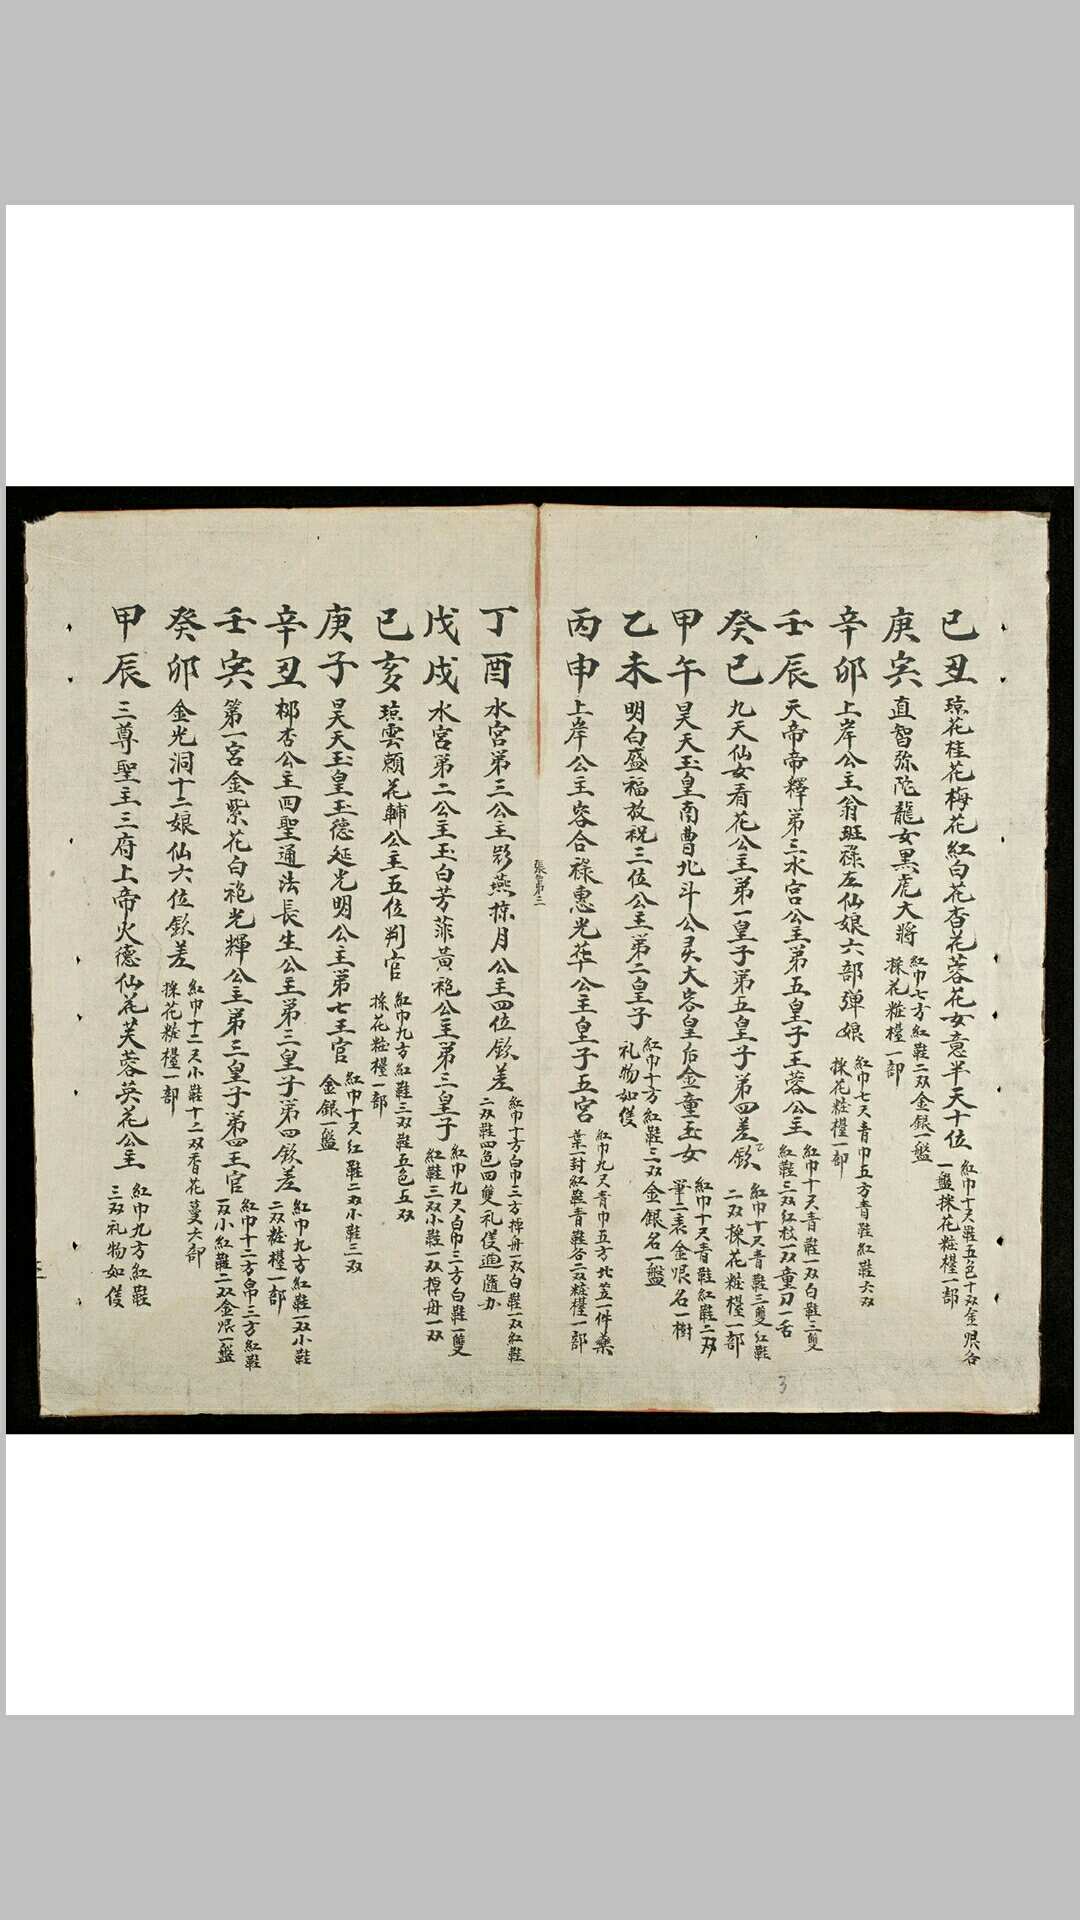 己丑 琼花桂花梅花紅白花杏花蓉花女意半天十位 紅巾十尺鞋五色十双金銀各
一盤採花粧檯一部
庚寅 直智弥陀龍女黑虎大將 紅巾七方紅鞋二双金銀一盤
採花粧檯一部
辛卯 上岸公主翁斑祿左仙娘六部弹娘 紅巾七尺青巾五方青鞋紅鞋六双
採花粧檯一部
壬辰 天帝帝釋第三水宮公主第五皇子王蓉公主 紅巾十尺青鞋一双白鞋三雙
紅鞋三双紅枝一双童刀一舌
癸巳 九天仙女看花公主第一皇子第五皇子第四差欽 紅巾十尺青鞋三雙紅鞋
二双採花粧檯一部
甲午 昊天玉皇南曹北斗公灵大容皇后金童玉女 紅巾十尺青鞋紅鞋二双
筆二表金銀名一樹
乙未 明白盛福放祝三位公主第二皇子 紅巾十方紅鞋三双金銀名一盤
礼物如儀
丙申 上岸公主容合祿惠光華公主皇子五宮 紅巾九尺青巾五方北笠一件藥
葉一封紅鞋青鞋各二双粧檯一部
張第三
丁酉 水宮第三公主影燕掠月公主四位欽差 紅巾十方白巾三方掉舟一双白鞋一双紅鞋
二双鞋四色四雙礼儀迊匯办
戊戌 水宮第二公主玉白芳菲黃袍公主第三皇子 紅巾九尺白巾三方白鞋一雙
紅鞋三双小鞋一双掉舟一双
己亥 琼雲賴花輔公主五位判官 紅巾九方紅鞋三双鞋五色五双
採花粧檯一部
庚子 昊天玉皇玉德延光明公主第七王官 紅巾十尺紅鞋二双小鞋三双
金銀一盤
辛丑 梛杏公主四聖通法長生公主第三皇子第四欽差 紅巾九方紅鞋一双小鞋
二双粧檯一部
壬寅 第一宮金紫花白袍光輝公主第三皇子第四王官 紅巾十二方帛三方紅鞋
一双小紅鞋二双金銀一盤
癸卯 金光洞十二娘仙六位欽差 紅巾十二尺小鞋十二双香花蔓六部
採花粧檯一部
甲辰 三尊聖主三府上帝火德仙花芙蓉英花公主 紅巾九方紅鞋
三双礼物如儀
3